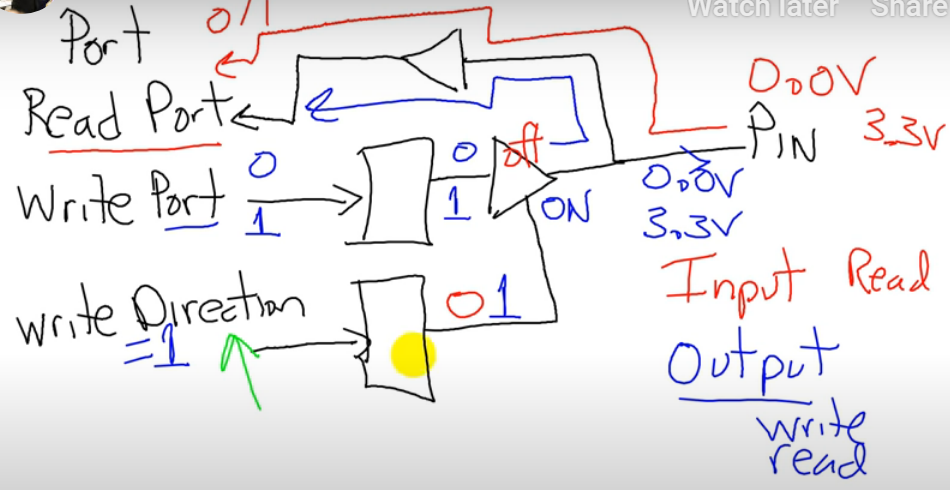 Watch later Share
Port
0/1
Read Port
0.0V
PIN
3.3V
off
0
0
Write Port
1
1
ON
0.0V
3.3V
Input Read
write Direction
=1
0 1
Output
write
read